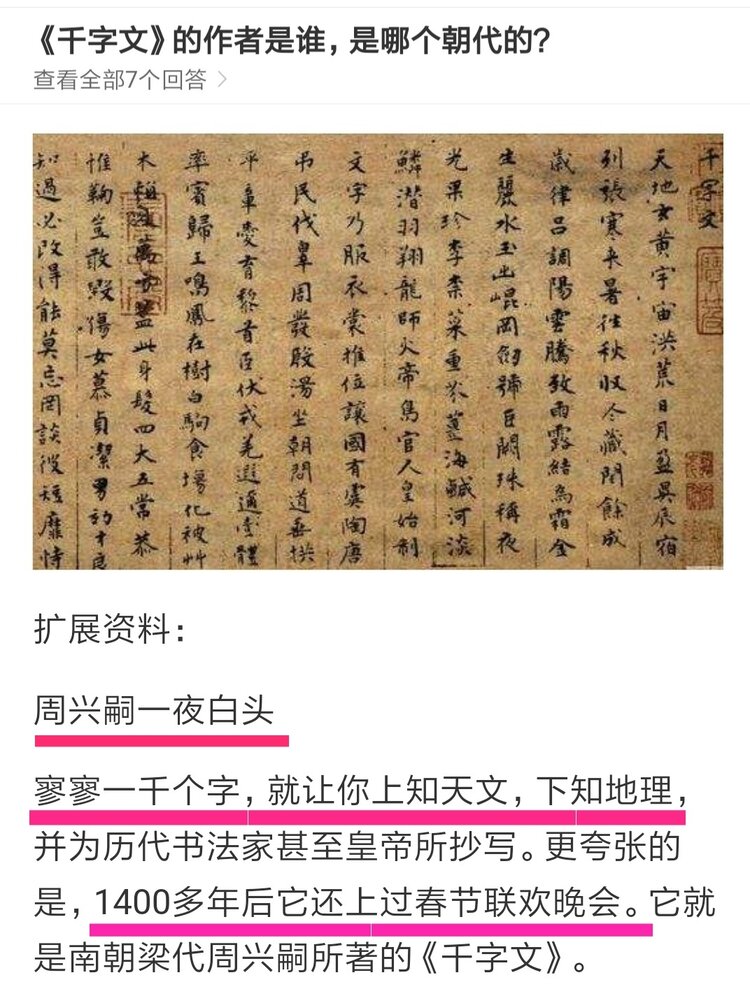 《千字文》的作者是谁，是哪个朝代的？
查看全部7个回答
千字文
天地玄黄宇宙洪荒日月盈昃辰宿
列張寒来暑往秋收冬藏閏餘成
歲律呂調陽雲騰致雨露結為霜金
生麗水玉出崐岡劒號巨闕珠稱夜
光果珍李柰菜重芥薑海鹹河淡
鱗潛羽翔龍師火帝鳥官人皇始制
文字乃服衣裳推位讓國有虞陶唐
吊民伐辠周發殷湯坐朝問道垂拱
平章愛育黎首臣伏戎羌遐邇壹體
率賓歸王鳴鳳在樹白駒食場化被艸
木賴及萬方蓋此身髮四大五常恭
惟鞠豈敢毀傷女慕貞潔男効才良
知過必改得能莫忘罔談彼短靡恃
扩展资料：
周兴嗣一夜白头
寥寥一千个字，就让你上知天文，下知地理，
并为历代书法家甚至皇帝所抄写。更夸张的
是，1400多年后它还上过春节联欢晚会。它就
是南朝梁代周兴嗣所著的《千字文》。